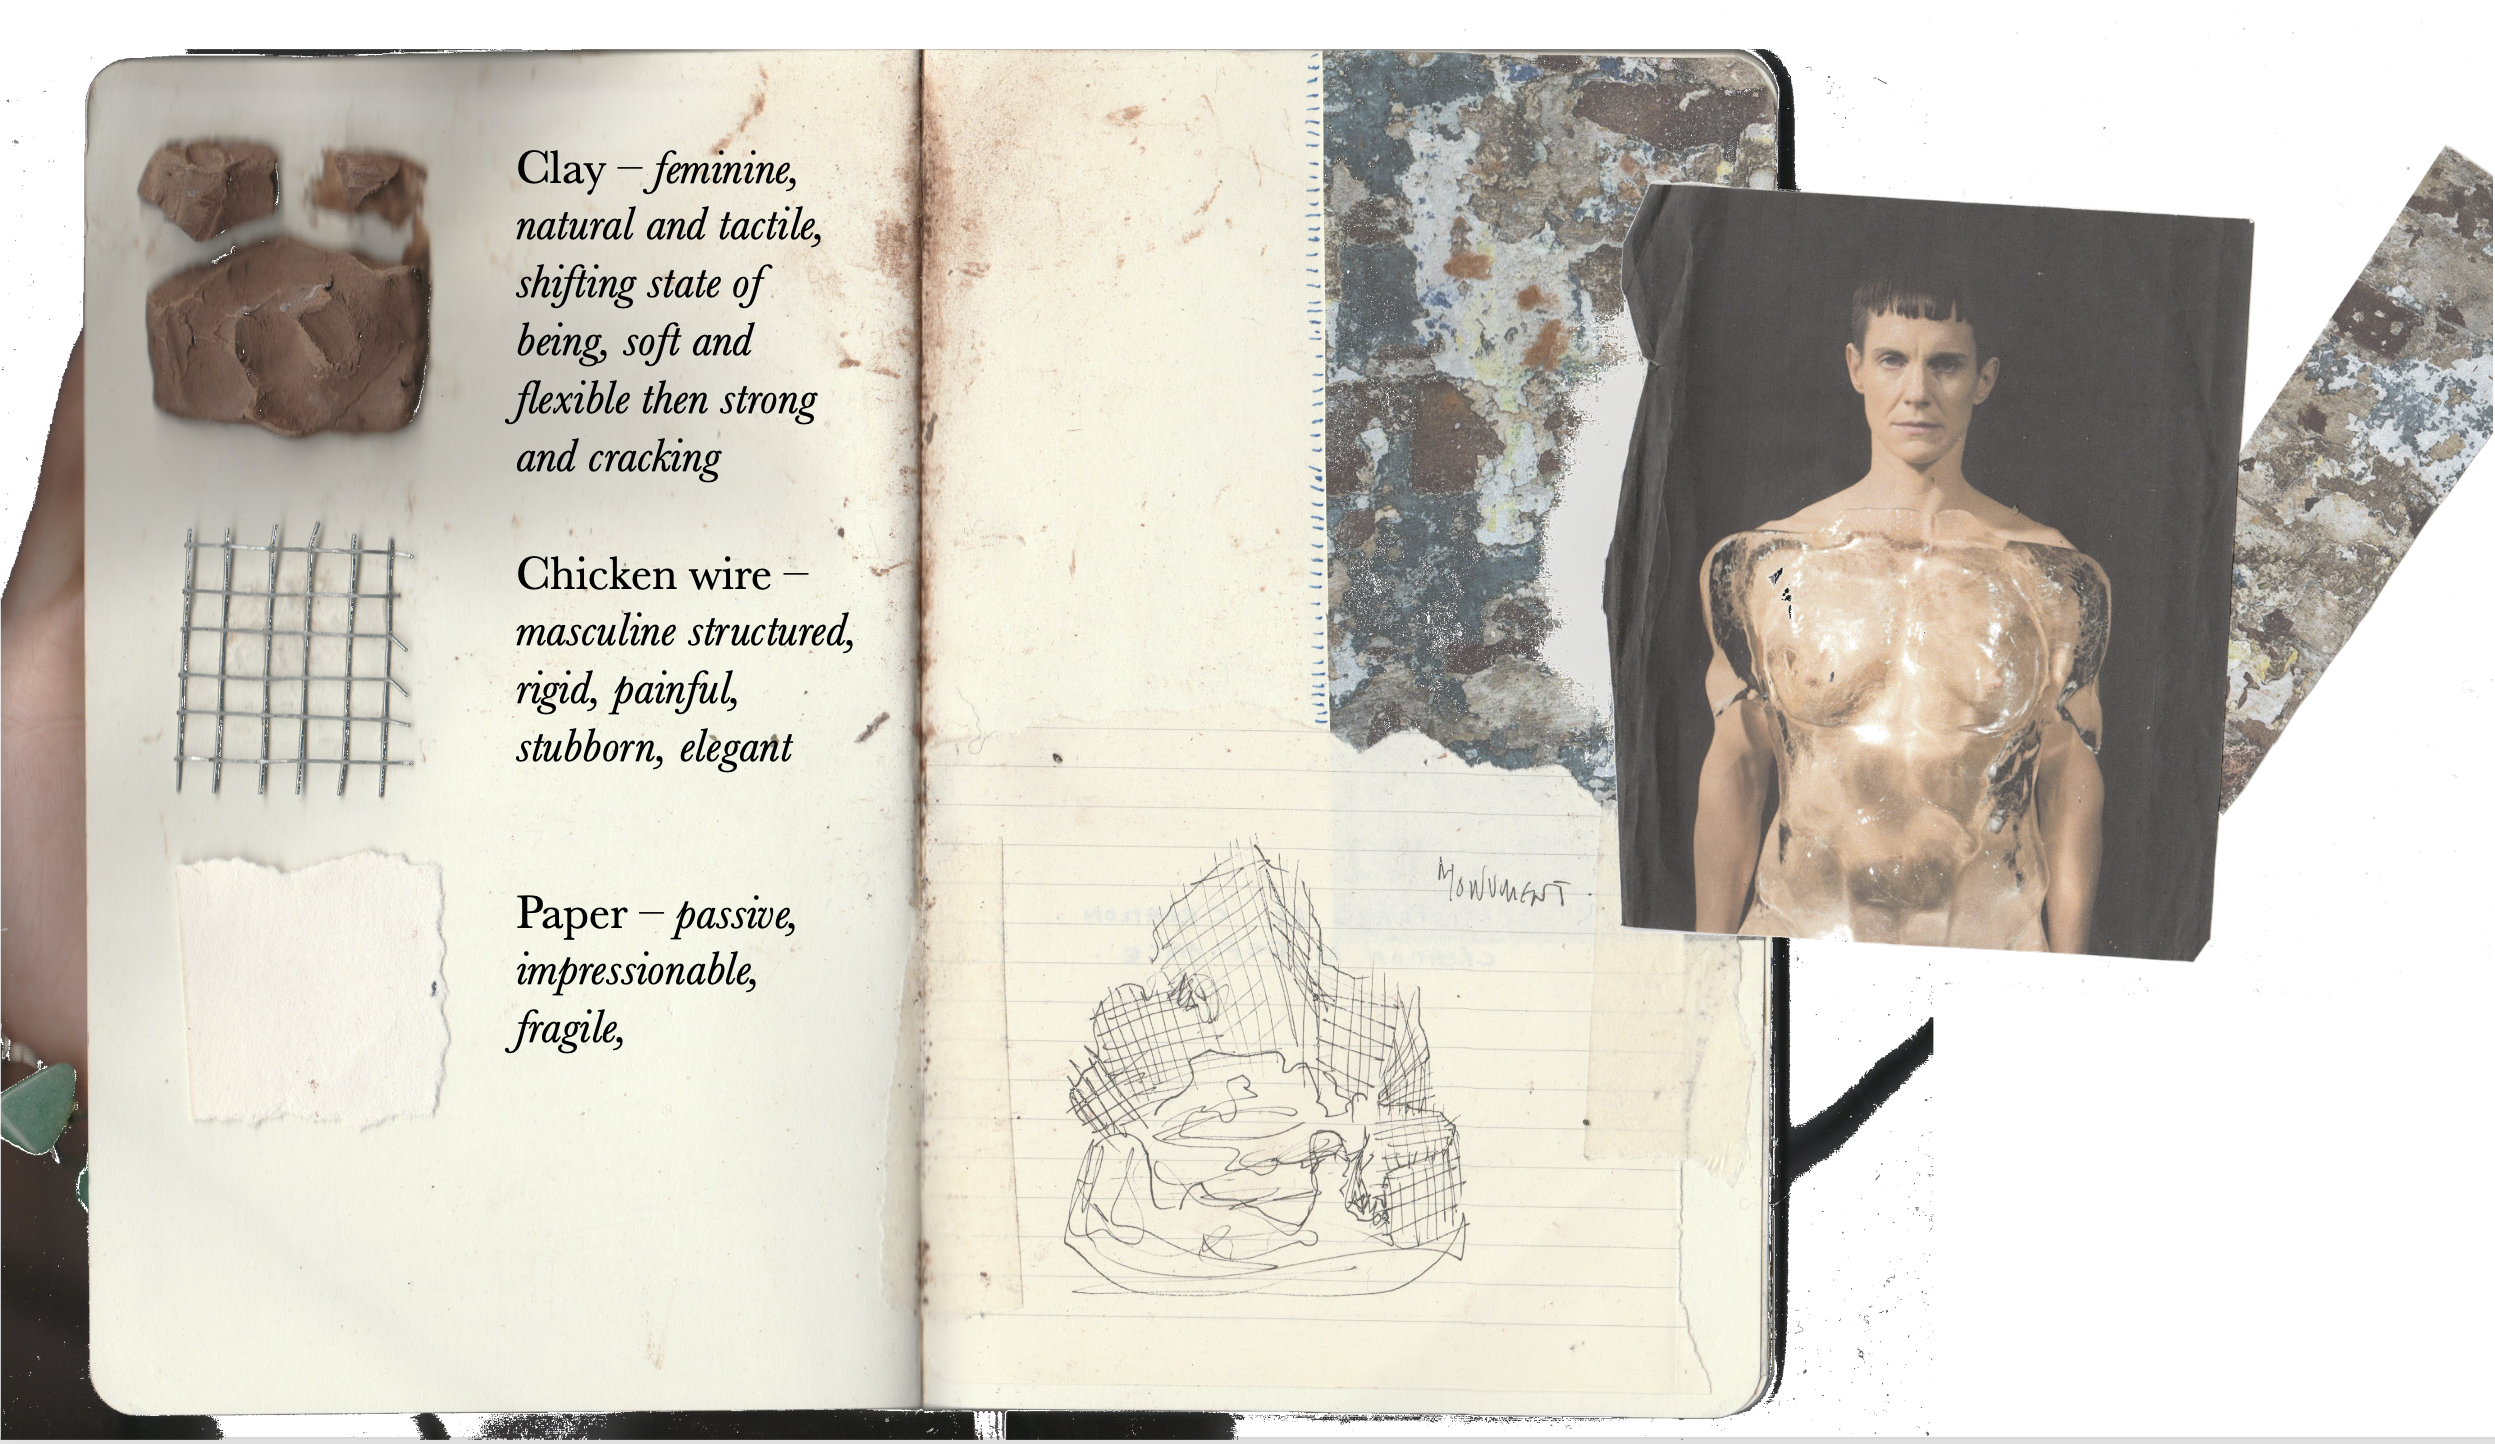 Clay – feminine,
natural and tactile,
shifting state of
being, soft and
flexible then strong
and cracking
Chicken wire –
masculine structured,
rigid, painful,
stubborn, elegant
Paper – passive,
impressionable,
fragile,
MONUMENT